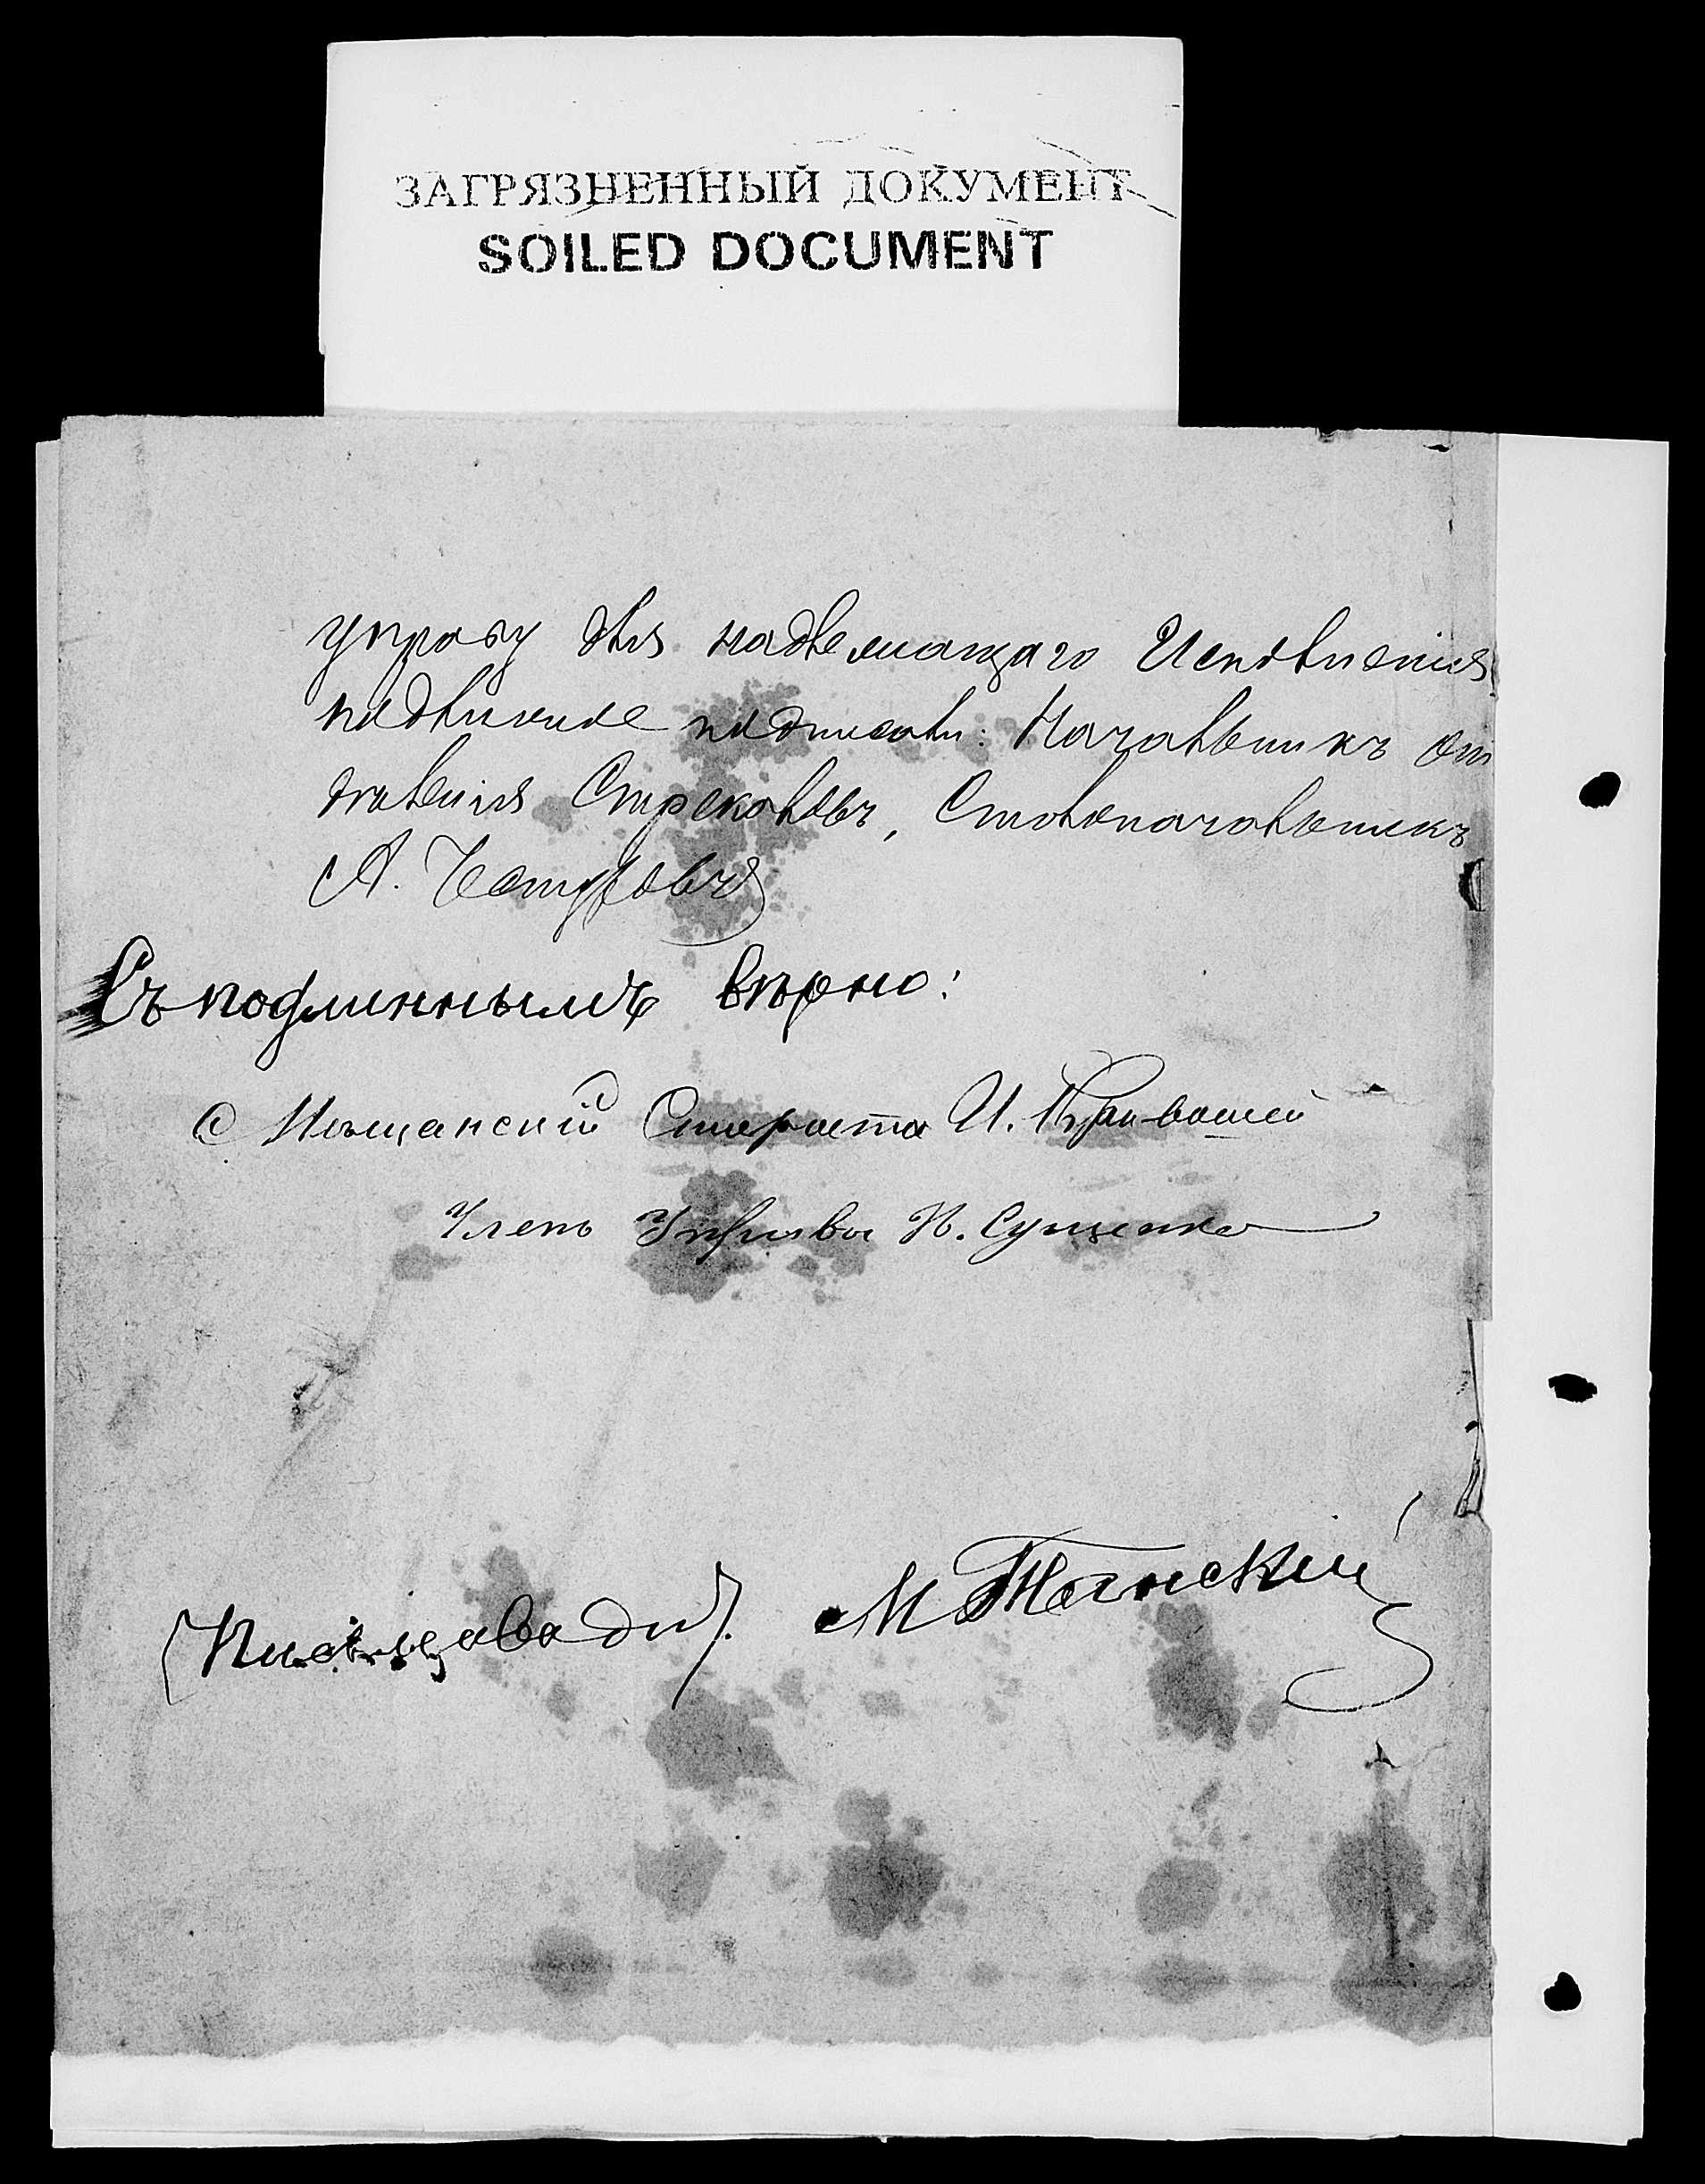 ЗАГРЯЗНЕННЫЙ ДОКУМЕНТ
SOILED DOCUMENT
управу для надлежащаго Исполненія
подлинное подписали: Начальникъ от
дѣленія Стрекаловъ, Столоначальникъ
А.
Съ подлиннымъ вѣрно:
Мѣщанскій Староста И.
Членъ Управы И. Сущенко
М Танскій